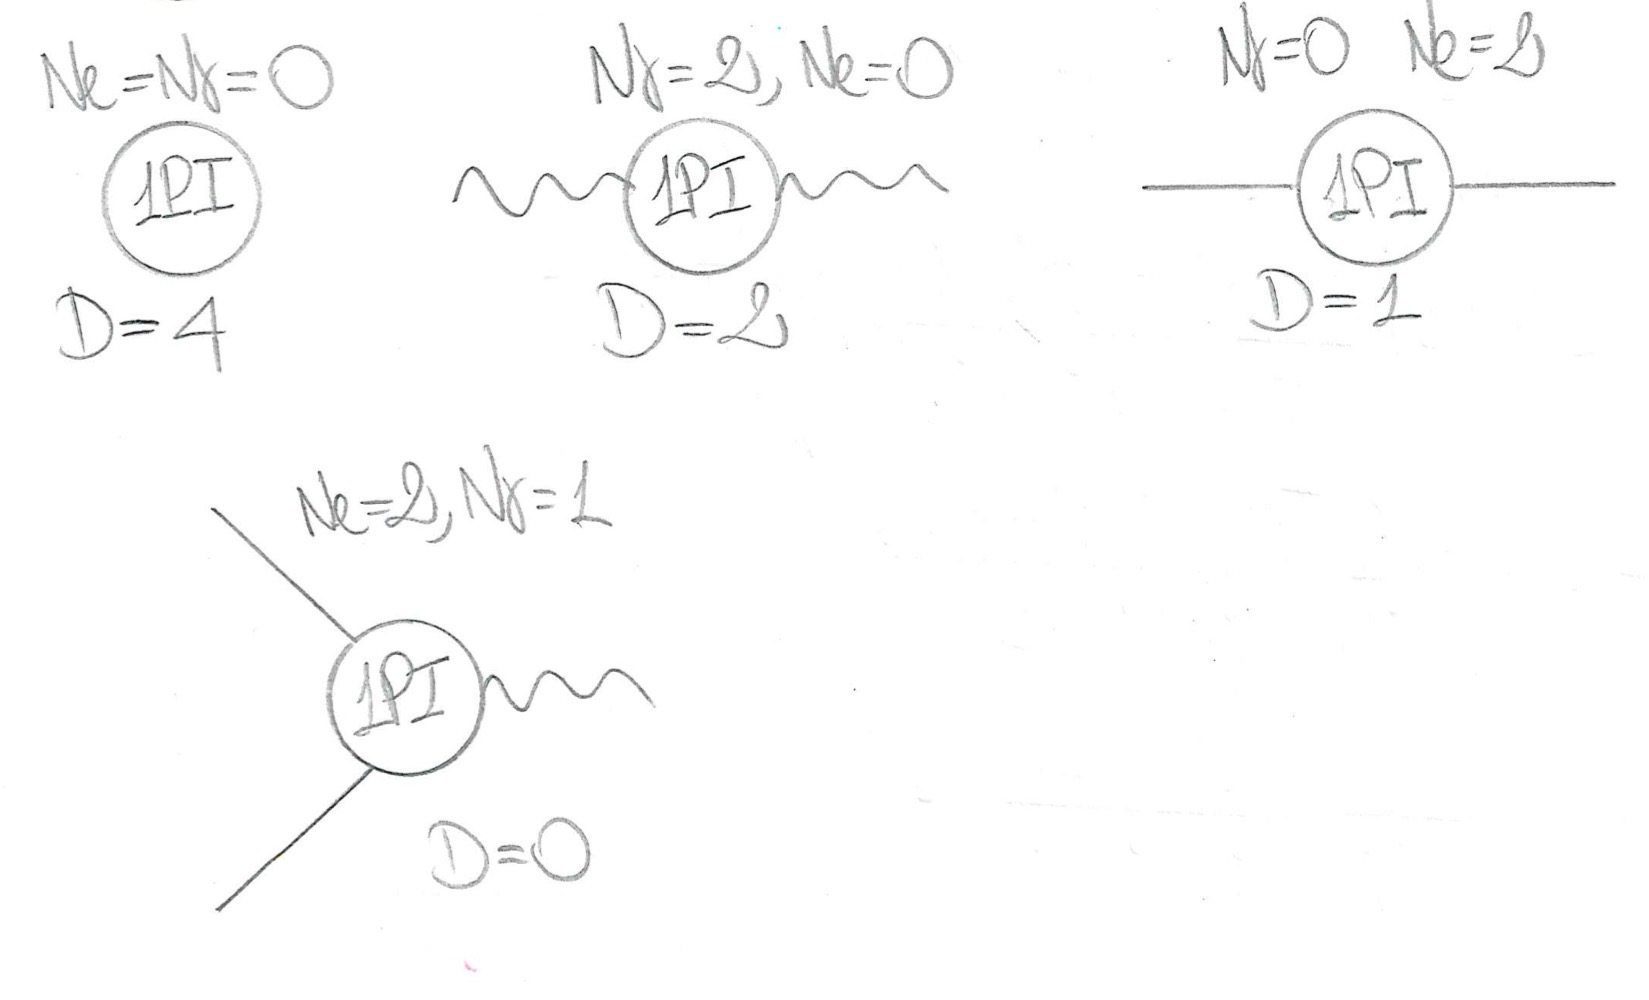 Ne=Nγ=0
1PI
D=4
Nγ=2, Ne=0
1PI
D=2
Nγ=0 Ne=2
1PI
D=1
Ne=2, Nγ=1
1PI
D=0